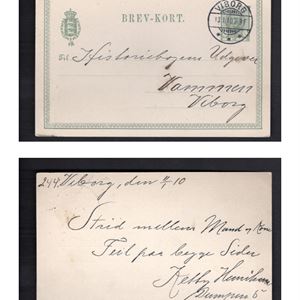 BREV-KORT.
VIBORG
Til Historiebogens Udgiver
Vammen
Viborg
244. Viborg, den 10
Strid mellem Mand og Kone
Feil paa begge Sider
Ketty
Dumpen 5